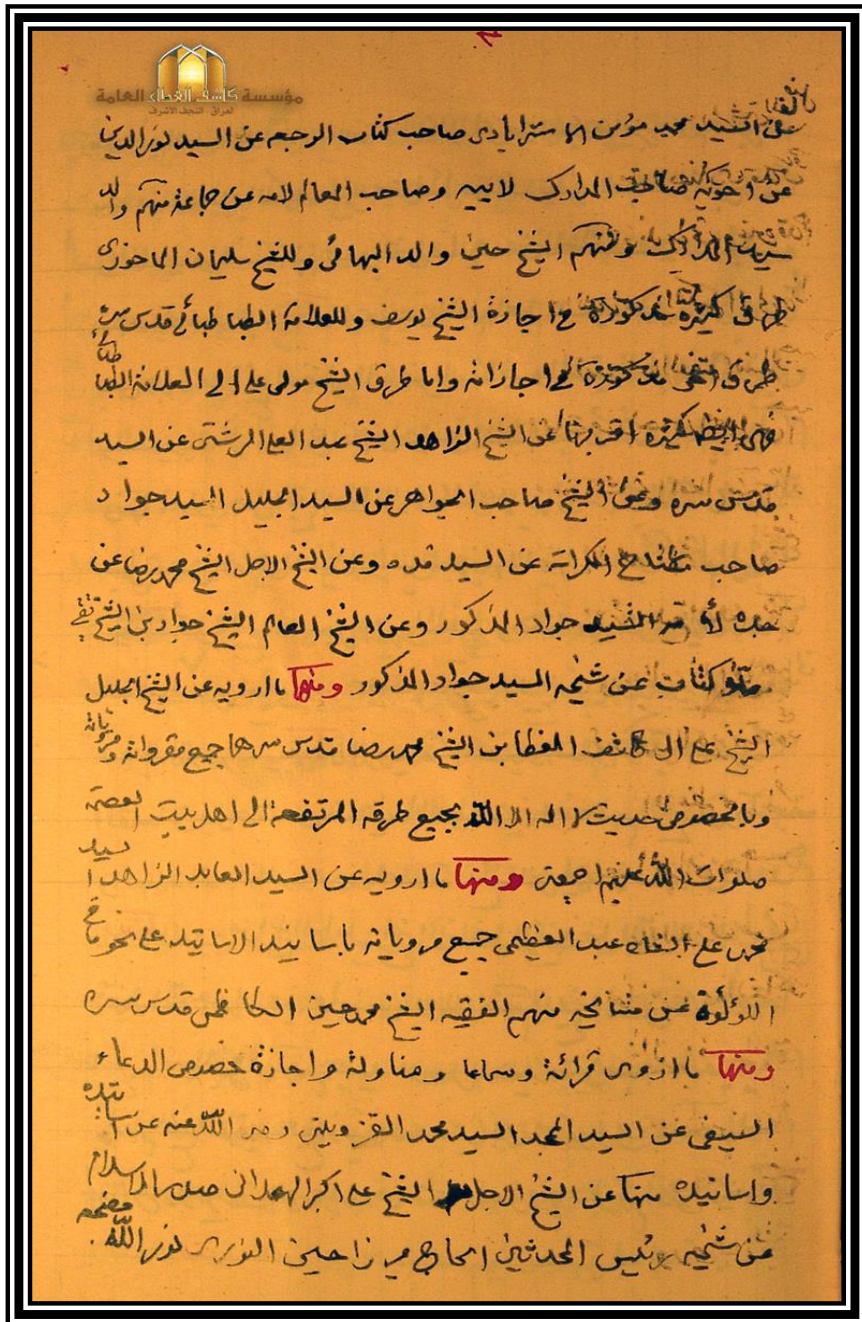 مؤسسة كاشف الغطاء العامة
العراق - النجف الأشرف
عن السيد محمد مؤمن الاسترابادى صاحب كتاب الرجعه عن السيد نور الدين
عن اخويه صاحب المدارك لابيه وصاحب المعالم لامه عن جماعة منهم والد
سيد المدارك ومنهم الشيخ حسين والد البهائى وللشيخ سليمان الماحوزى
طرق كثيرة مذكورة فى اجازة الشيخ يوسف وللعلامة الطباطبائى قدس سره
طرق اخرى مذكورة فى اجازاته واما طرق الشيخ مولى على الى العلامة الطباطبائى
فهى ايضا كثيرة اقربها عن الشيخ الزاهد الشيخ عبد العلى الرشتى عن السيد
قدس سره وعن الشيخ صاحب الجواهر عن السيد الجليل السيد جواد
صاحب مفتاح الكرامة عن السيد قده وعن الشيخ الاجل الشيخ محمد رضا عن
جده لأمه السيد جواد المذكور وعن الشيخ العالم الشيخ جواد بن الشيخ تقى
ملا كتاب عن شيخه السيد جواد المذكور ومنها ما ارويه عن الشيخ الجليل
الشيخ على ال كاشف الغطا بن الشيخ محمد رضا قدس سرهما جميع مقرواته ومروياته
وبالخصوص حديث لا اله الا الله بجميع طرقه المرتفعة الى اهل بيت العصمة
صلوات الله عليهم اجمعين ومنها ما ارويه عن السيد العابد الزاهد السيد
محمد على الشاه عبد العظيمى جميع مروياته باسانيد الاساتيد على نحو ما فى
اللؤلؤة عن مشايخه منهم الفقيه الشيخ محمد حسين الكاظمى قدس سره
ومنها ما اروى قرائة وسماعا ومناولة واجازة خصوص الدعاء
السيفى عن السيد المجد السيد محمد القزوينى رضى الله عنه عن اساتيده
واسانيده منها عن الشيخ الاجل الشيخ على اكبر الهمدانى صدر الاسلام
عن شيخه رئيس المحدثين الحاج ميرزا حسين النورى نور الله مضجعه